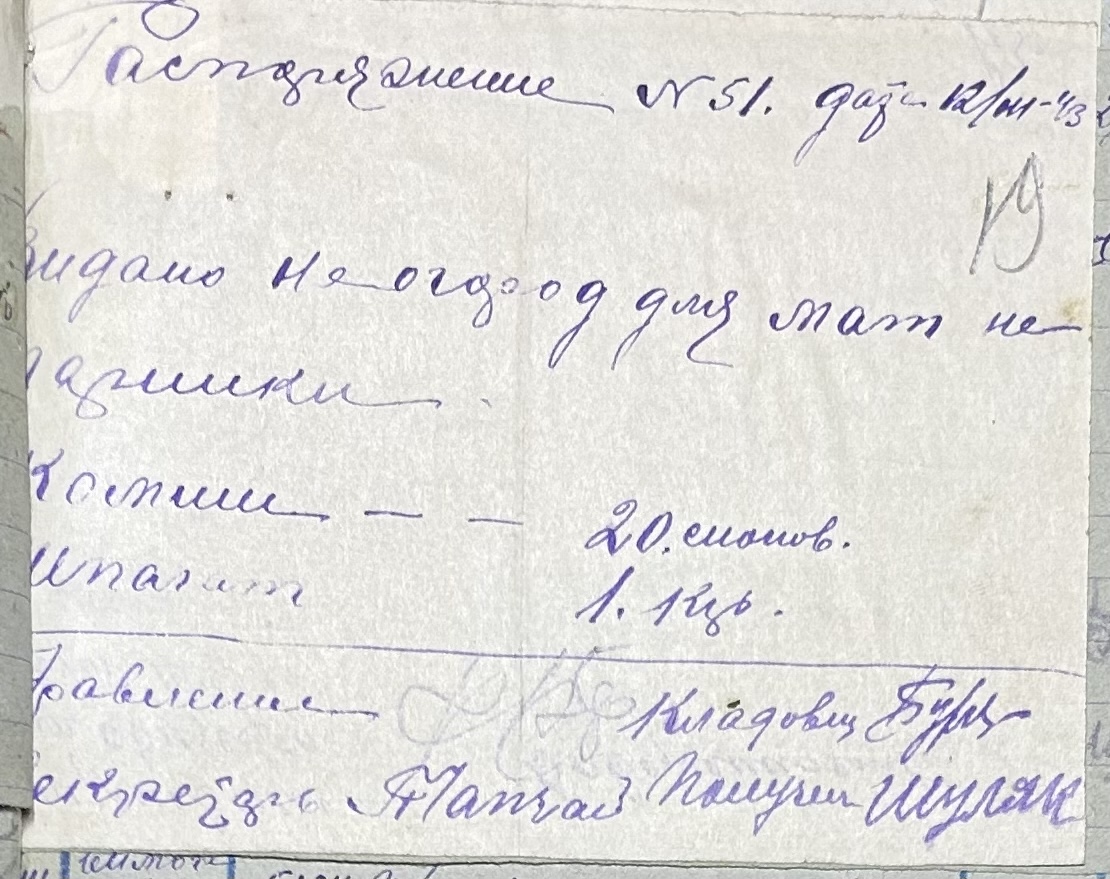 Распоряжение N 51. дата 12/III-43
19
Видано на огород для мат на
парники
Камиш — — 20. снопов.
Шпагат 1. кгр.
Правление Кладовщ
Секретарь Получил Шуляк